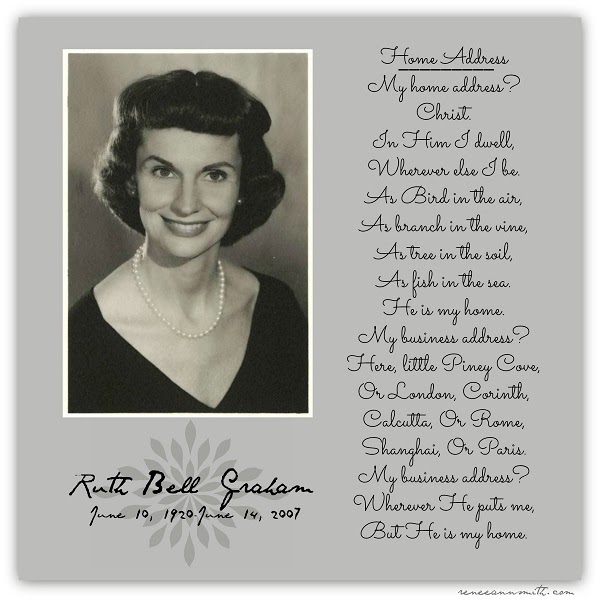 Home Address
My home address?
Christ.
In Him I dwell,
Wherever else I be.
As Bird in the air,
As branch in the vine,
As tree in the soil,
As fish in the sea.
He is my home.
My business address?
Here, little Piney Cove,
Or London, Corinth,
Calcutta, Or Rome,
Shanghai, Or Paris.
My business address?
Wherever He puts me,
But He is my home.
Ruth Bell Graham
June 10, 1920-June 14, 2007
reneeannsmith.com